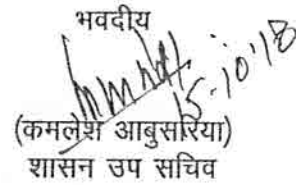 भवदीय
15-10'18
(कमलेश आबुसरिया)
शासन उप सचिव